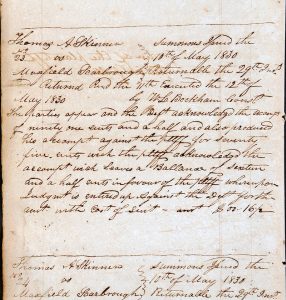 Thomas A Skinner Summons Issued the
23 vs 10th of May 1830
Maxfield Scarbrough Returnable the 29th Inst
and Returned and the Wth Executed the 12th of
May 1830 by Const
The parties appear and the Deft acknowledg the accompt
of ninety one cents and a half and also produced
his accompt against the pltff for seventy
five cents wich the pltff acknowledg the
accompt wich leave a Ballance of Sixteen
and a half cents in favour of the pltff whereupon
Judgmt is entred up against the Def for the
amt with Cost of Suit - amt $ 00.16½
Thomas A Skinner Summons Issued the
24 vs 10th of May 1830
Maxfield Scarbrough Returnable the 29th Inst